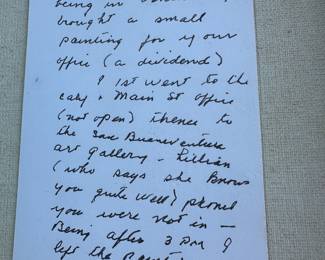 being in
brought a small
painting for your
office (a dividend)
I 1st went to the
City & Main St office
(not open) thence to
the San Buenaventura
art gallery - Lillian
(who says she knows
you quite well) phoned
you were not in —
Being after 3 PM I
left the